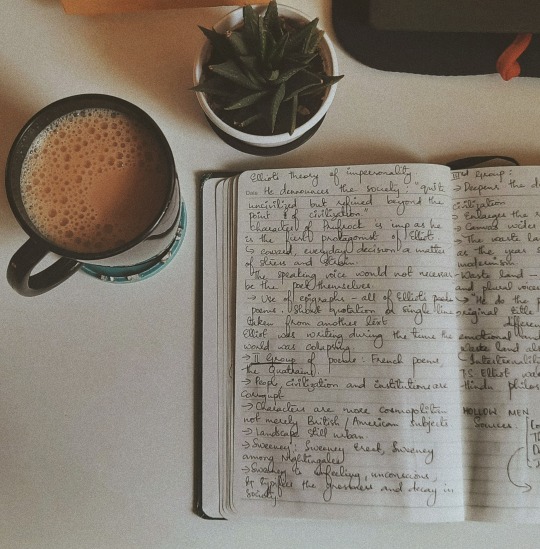 Elliots theory of impersonality.
He dennounces the society: "quite
uncivilized but refined beyond the
point of civilization."
Character of Prufrock is imp as he
is the first protagonist of Elliot.
→ coward, everyday decision a matter
of stress and
The speaking voice would not
be the poet themselves.
→ Use of epigraphs - all of Elliots
poems. Short quotation or single line
taken from another text
Elliot was writing during the time the
world was collapsing.
→ II Group of poems: French poems,
the Quatrains.
→ People, civilization and institutions are
corrupt
→ Characters are more cosmopolitan
not merely British / American subjects
→ Landscape still urban.
→ Sweeney: Sweeney Erect, Sweeney
among Nightingales
→ Sweeney is unfeeling, unconscious,
It typifies the grossness and decay in
Society.
Group:
→ Deepens the
civilization
→ Enlarges the
→ Canvas wides
→ The waste
as the
modernism
Waste land -
and plural voices
→ "He do the
original title

emotional
Waste land
Intertextuality
TS. Elliot
Hindu philos
HOLLOW MEN
Sources: